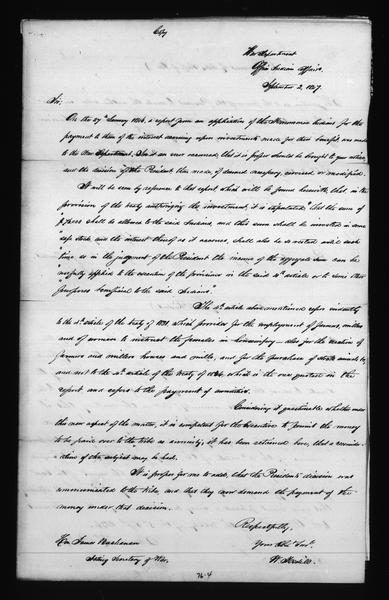 Copy
War Department
Office Indian Affairs
September 2, 1847.
Sir:
On the 27th January 1846, a report from an application of the Menomonee Indians for the
payment to them of the interest accruing upon investments made for their benefit, was made
to the War Department. In it an error occurred, that it is proper should be brought to your notice,
and the decision of the President then made if deemed necessary, reversed or modified.
It will be seen by reference to that report which will be found herewith, that in the
provision of the treaty authorizing the investment, it is stipulated that the sum of
shall be allowed to the said Indians, and this sum shall be invested in some
safe stock, and the interest thereof as it accrues, shall also be so vested until such
time as in the judgment of the President the income of the aggregate sum can be
usefully applied to the execution of the provisions in the said 4th article or to some other
purposes beneficial to the said Indians."
The 4th article above mentioned refers
to the 4th article of the treaty of 1831 which provides for the employment of farmers, millers
and of women to instruct the females in also for the erection of
farmers and millers houses and mills, and for the purchase of stock animals &c.
and not to the 4th article of the treaty of which is the one quoted in the
report and refers to the payment of annuities.
Considering it questionable whether under
this new aspect of the matter, it is competent for the Executive to permit the money
to be paid over to the tribe as annuity, it has been
of the subject may be had.
It is proper for me to add, that the Presidents decision was
communicated to the tribe, and that they now demand the payment of the
money under that decision.
Respectfully,
Your Obt Servt.
W. Medill
Hon James Buchanan
Acting Secretary of War.
764